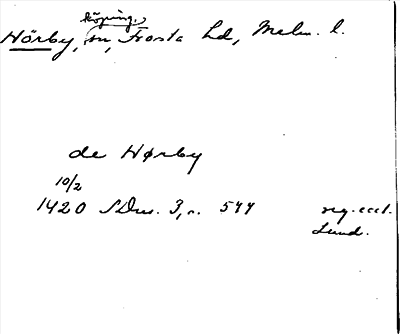 köping,
Hörby, sn, Frosta hd, Malm. l.
de Hørby
10/2
1420 SDns. 3, s. 577 reg. eccl.
Lund.